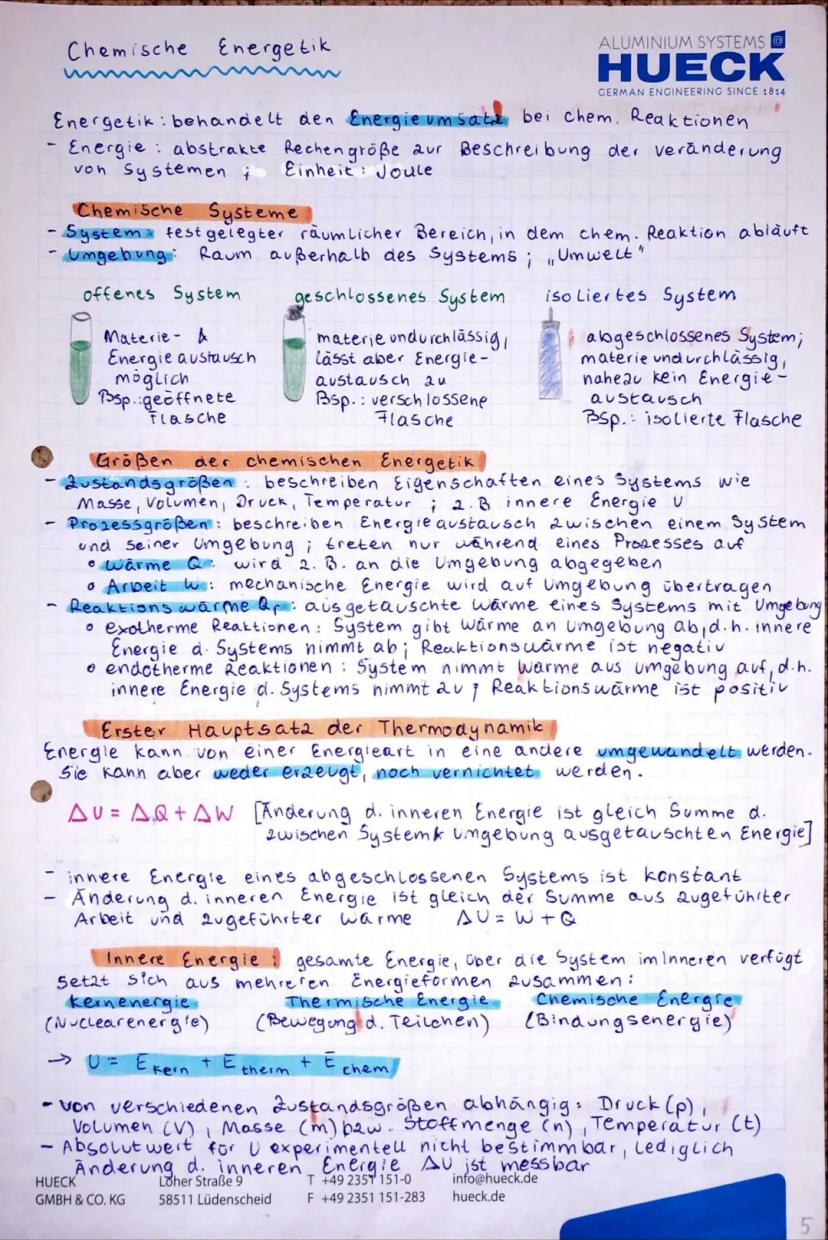 Chemische Energetik
ALUMINIUM SYSTEMS
HUECK
GERMAN ENGINEERING SINCE 1814
Energetik: behandelt den Energieumsatz bei chem. Reaktionen
- Energie: abstrakte Rechengröße zur Beschreibung der Veränderung
von Systemen ; Einheit: Joule
Chemische Systeme
- System: festgelegter räumlicher Bereich, in dem chem. Reaktion abläuft
- Umgebung: Raum außerhalb des Systems ; „Umwelt"
offenes System
Materie- &
Energieaustausch
möglich
Bsp.: geöffnete
Flasche
geschlossenes System
materieundurchlässig,
lässt aber Energie-
austausch zu
Bsp.: verschlossene
Flasche
isoliertes System
abgeschlossenes System;
materieundurchlässig,
nahezu kein Energie-
austausch
Bsp.: isolierte Flasche
Größen der chemischen Energetik
- Zustandsgrößen: beschreiben Eigenschaften eines Systems wie
Masse, Volumen, Druck, Temperatur ; z.B innere Energie U
- Prozessgrößen: beschreiben Energieaustausch zwischen einem System
und seiner Umgebung ; treten nur während eines Prozesses auf
• Wärme Q: wird z.B. an die Umgebung abgegeben
• Arbeit W: mechanische Energie wird auf Umgebung übertragen
- Reaktionswärme Qr: ausgetauschte Wärme eines Systems mit Umgebung
• exotherme Reaktionen: System gibt Wärme an Umgebung ab, d.h. innere
Energie d. Systems nimmt ab; Reaktionswärme ist negativ
• endotherme Reaktionen: System nimmt Wärme aus Umgebung auf, d.h.
innere Energie d. Systems nimmt zu; Reaktionswärme ist positiv
Erster Hauptsatz der Thermodynamik
Energie kann von einer Energieart in eine andere umgewandelt werden.
Sie kann aber weder erzeugt, noch vernichtet werden.
ΔU = ΔQ + ΔW [Änderung d. inneren Energie ist gleich Summe d.
zwischen System & Umgebung ausgetauschten Energie]
- innere Energie eines abgeschlossenen Systems ist konstant
- Änderung d. inneren Energie ist gleich der Summe aus zugeführter
Arbeit und zugeführter Wärme ΔU = W + Q
Innere Energie: gesamte Energie, über die System im Inneren verfügt
setzt sich aus mehreren Energieformen zusammen:
Kernenergie Thermische Energie Chemische Energie
(Nuclearenergie) (Bewegung d. Teilchen) (Bindungsenergie)
→ U = E Kern + E therm + E chem
- von verschiedenen Zustandsgrößen abhängig: Druck (p),
Volumen (V), Masse (m) bzw. Stoffmenge (n), Temperatur (t)
- Absolutwert für U experimentell nicht bestimmbar, lediglich
Änderung d. inneren Energie ΔU ist messbar
HUECK Loher Straße 9 T +49 2351 151-0 info@hueck.de
GMBH & CO. KG 58511 Lüdenscheid F +49 2351 151-283 hueck.de
5